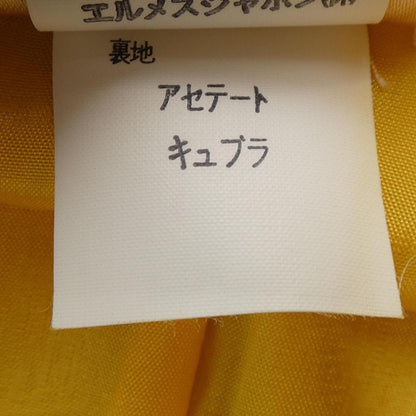 エルメスジャポン(株)
裏地
アセテート
キュプラ